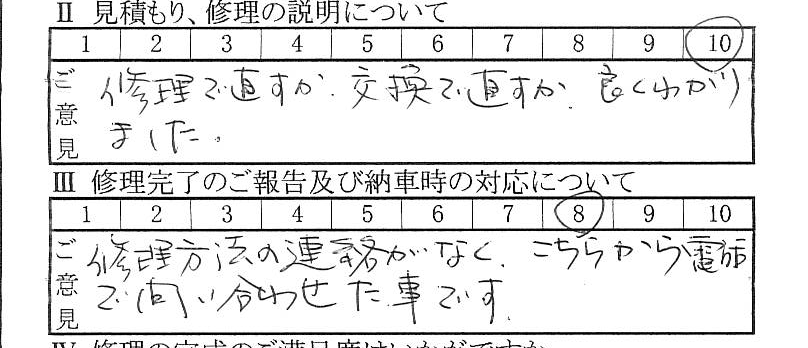 Ⅱ 見積もり、修理の説明について
1 2 3 4 5 6 7 8 9 10
ご意見
修理で直すか、交換で直すか、良くわかり
ました。
Ⅲ 修理完了のご報告及び納車時の対応について
1 2 3 4 5 6 7 8 9 10
ご意見
修理方法の連絡がなく、こちらから電話
で問い合わせた事です。
Ⅳ 修理の完成のご満足度はいかがですか